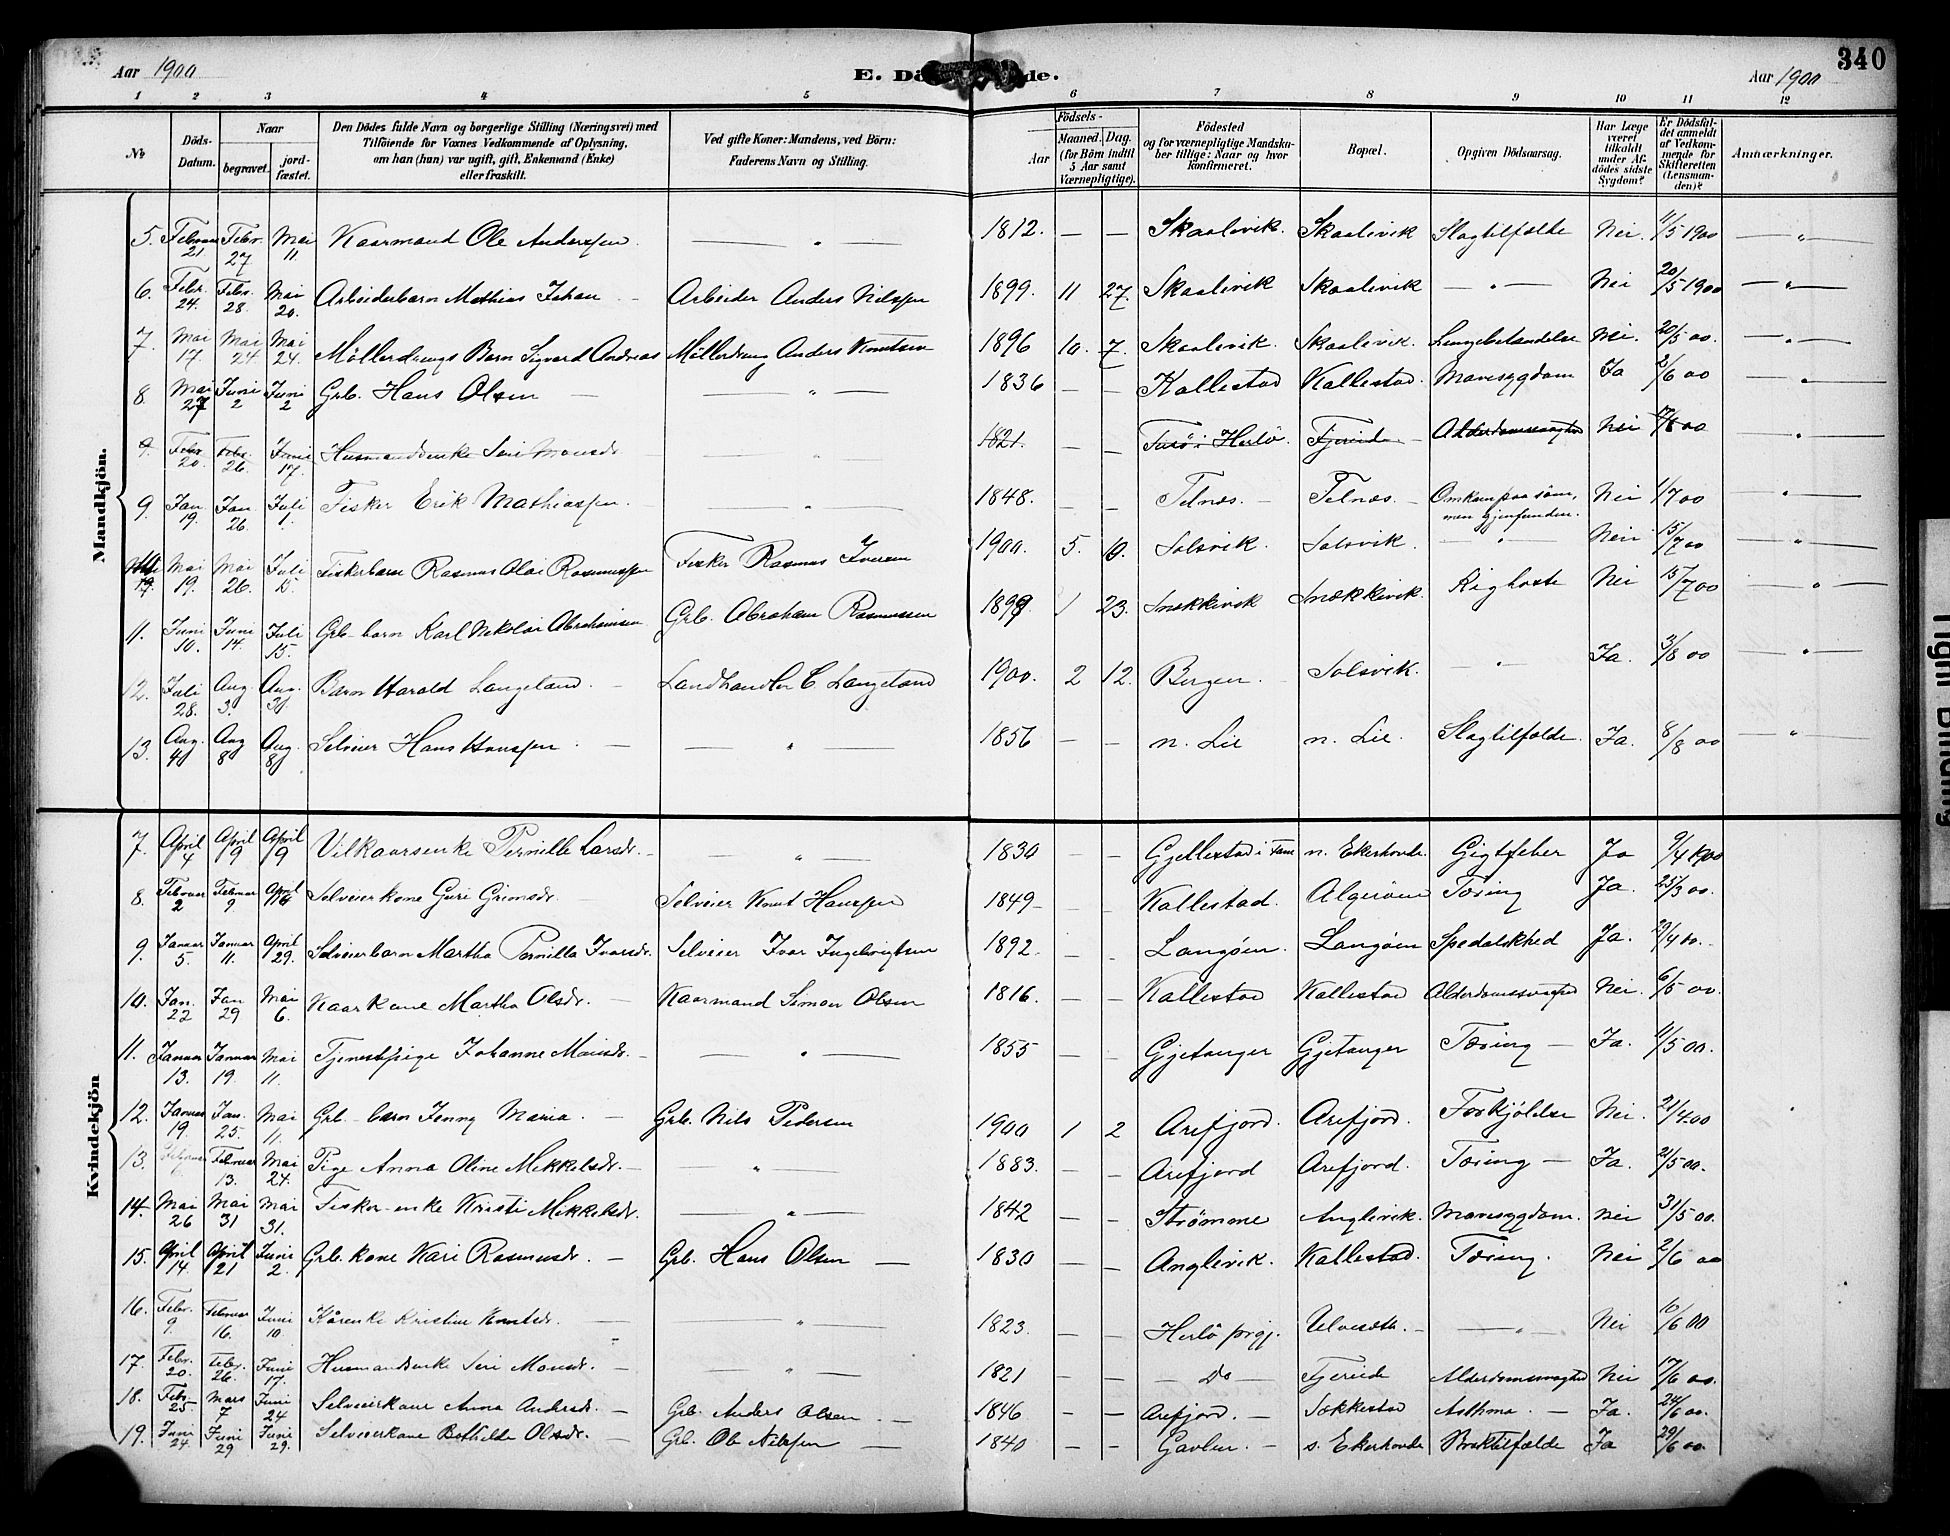 340
Aar 1900
E. Dö de.
Aar 1900
1 2 3 4 5 6 7 8 9 10 11 12
No
Döds-Datum.
Naar
begravet.
jord-fæstet.
Den Dödes fulde Navn og borgerlige Stilling (Næringsvei) med
Tilföiende for Voxnes Vedkommende af Oplysning,
om han (hun) var ugift, gift, Enkemand (Enke)
eller fraskilt.
Ved gifte Koner: Mandens, ved Börn:
Faderens Navn og Stilling.
Födsels-
Aar
Maaned. Dag.
(for Börn indtil
5 Aar samt
Værnepligtige).
Födested
og for værnepligtige Mandska-
ber tillige: Naar og hvor
konfirmeret.
Bopæl.
Opgiven Dödsaarsag.
Har Læge
været
tilkaldt
under Af-
dödes sidste
Sygdom?
Er Dödsfal-
det anmeldt
af Vedkom-
mende for
Skifteretten
(Lensman-
den)?
Anmærkninger.
Mandkjön.
5. Februar 21 Febr. 27 Mai 11. Kaarmand Ole Anderssen — „ 1812. — — Skaalevik. Skaalevik Slagtilfælde Nei. 11/5 1900 — „ —
6. Febr. 24. Febr. 28. Mai 20. Arbeiderbarn Mathias Johan — Arbeider Anders Nilssen 1899. 11 27. Skaalevik Skaalevik — „ — Nei 20/5 1900 — „ —
7. Mai 17. Mai 24. Mai 24. Möllerdrengs Barn Sigvard Andreas Möllerdreng Anders Knutsen 1896 10. 7. Skaalevik. Skaalevik. Lungebetændelse Nei. 20/5 00. — „ —
8. Mai 27 Juni 2 Juni 2 Grb. Hans Olsen — — „ — 1836 — — Kallestad Kallestad. Mavesygdom Ja 2/6 00 — „ —
9. Febr. 20. Febr. 26. Juni 17. Husmandsenke Seri Monsdr. „ 1821. — — i Herlö. Alderdomssvaghed Nei „
9. Jan. 19. Jan. 26. Juli 1. Fisker Erik Mathiassen. „ 1848. — — Telnæs. — Telnæs. — Omkom paa söen, men gjenfunden. Nei 1/7 00 — „ —
19. Mai 19. Mai 26. Juli 15. Fiskerbarn Rasmus Olai Rasmussen Fisker Rasmus Iversen 1900. 5. 10. Solsvik. Solsvik. „ Nei 15/7 00 — „ —
11. Juni 10. Juni 14. Juli 15. Grb. barn Karl Nikolai Abrahamsen Grb. Abraham Rasmussen 1899. 1 23. Snekkevik Snekkevik. Kighoste Nei 15/7 00 — „ —
12. Juli 28. Aug. 3. Aug. 3 Barn Harald Langeland. — Landhandler C. Langeland 1900. 2 12. Bergen. — Solsvik. — „ — Ja. 3/8 00 — „ —
13. Aug. 4 Aug 8 Aug. 8 Selveier Hans Hanssen. — — „ 1856 — — n. Lie n. Lie. Slagtilfælde. Ja. 8/8 00 — „ —
Kvindekjön
7. April 4 April 9 April 9 Vilkaarsenke Pernille Larsdr. — — „ — 1830 — — Gjellestad i Fane n. Ekerhovde. Gigtfeber Ja 9/4 1900
8. Februar 2 Februar 9 April 16 Selveierkone Guri Grimsdr. Selveier Knut Hanssen 1849 — — Kallestad. Algeröen Tæring Ja. 25/3 00.
9. Januar 5. Januar 11. April 29. Selveierbarn Martha Pernille Ivarsdr. Selveier Ivar Ingebrigtsen 1892. — — Langöen. Langöen Spedalskhed Ja. 29/4 00.
10. Jan. 22 Jan 29 Mai 6. Kaarkone Martha Olsdr. — Kaarmand Simon Olsen 1816. — — Kallestad Kallestad Alderdomssvaghed Nei. 6/5 00.
11. Januar 13. Januar 19. Mai 11. Tjenestpige Johanne Monsdr. — — „ — 1855 — — Gjetanger Gjetanger Tæring — Ja. 11/5 00.
12. Januar 19. Jan. 25. Mai 11. Grb. barn Jenny Maria. — Grb. Nils Pedersen 1900 1 2 Arefjord. Arefjord. Forkjölelse Nei. 21/4 00
13. Februar 13. Mai 24. Pige Anna Oline Mikkelsdr. — — „ — 1883. — — Arefjord Arefjord. Tæring — Ja. 21/5 00.
14. Mai 26 Mai 31 Mai 31. Fisker-enke Kristi Mikkelsdr. — „ — 1842 — — Strömme Anglevik. Mavesygdom. Nei 31/5 00.
15. April 14. April 21 Juni 2. Grb. kone Kari Rasmusdr. — Grb. Hans Olsen — 1830 — — Anglevik. Kallestad. Tæring. Nei 2/6 00
16. Febr. 9. Februar 16. Juni 10. Kårenke Kristine Knutsdr. — — „ — 1823. — — Herlö prgj. Ulvesæth. — — „ — Nei 10/6 00
17. Febr. 20. Febr. 26. Juni 17. Husmandsenke Seri Monsdr. — — „ — 1821 — — — Do — Fjereide Alderdomssvaghed Nei 17/6 00.
18. Febr. 25. Mars 7 Juni 24 Selveierkone Anna Andersdr. — Grb. Anders Olsen — 1846 — — Arefjord. — Sekkestad Asthma. — Ja. 24/6 00.
19. Juni 24 Juni 29 Juni 29. Selveierkone Bothilde Olsdr. — Grb. Ole Nilssen — 1840 — — Gavlen. — s. Ekerhovde Broktilfælde Ja 29/6 00.